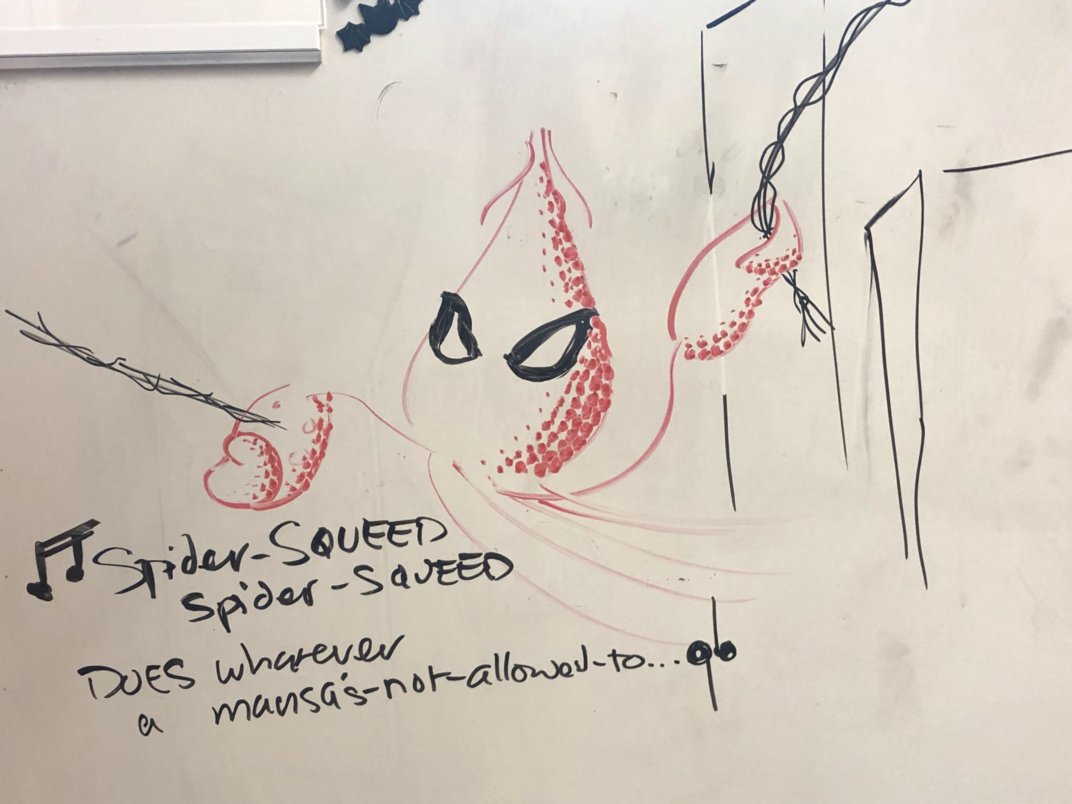 Spider-SQUEED
Spider-SQUEED
DOES whatever
a mansa's-not-allowed-to...